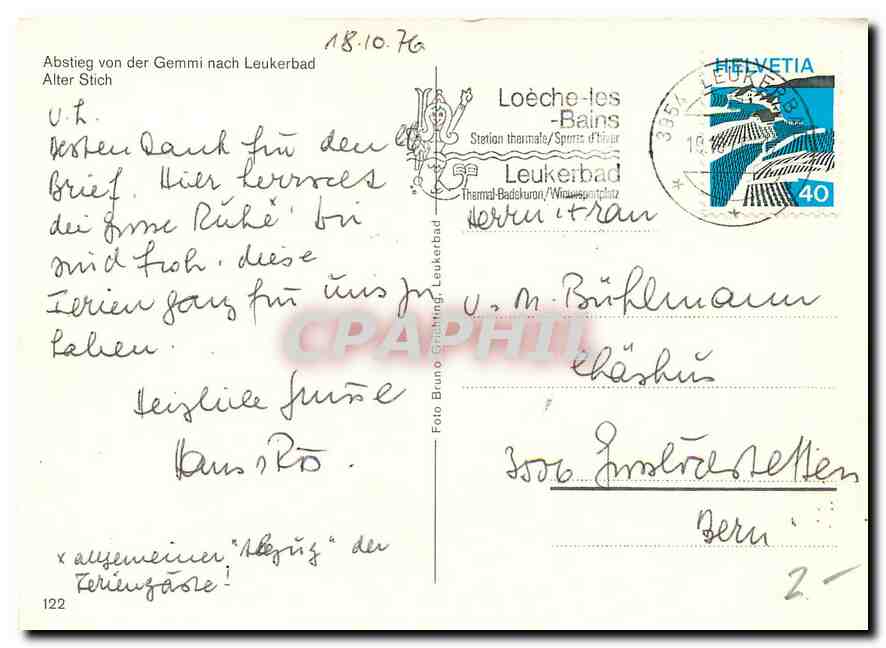 18.10.76
Abstieg von der Gemmi nach Leukerbad
Alter Stich
U. L.
Besten Dank für den
Brief. Hier herrscht
die grosse Ruhe x wir
sind froh, diese
Ferien ganz für uns zu
haben.
Herzliche Grüsse
Hans + Rös.
x allgemeiner "Abzug" der
Feriengäste!
122
Foto Bruno Grichting, Leukerbad
Loèche-les
-Bains
Station thermale/Sports d'hiver
Leukerbad
Thermal-Badekuren/Wintersportplatz
3954 LEUKERB
HELVETIA
40
Herrn + Frau
U. M. Bühlmann
Chäshus
3506 Grosshöchstetten
Bern
2.-
CPAPHIL